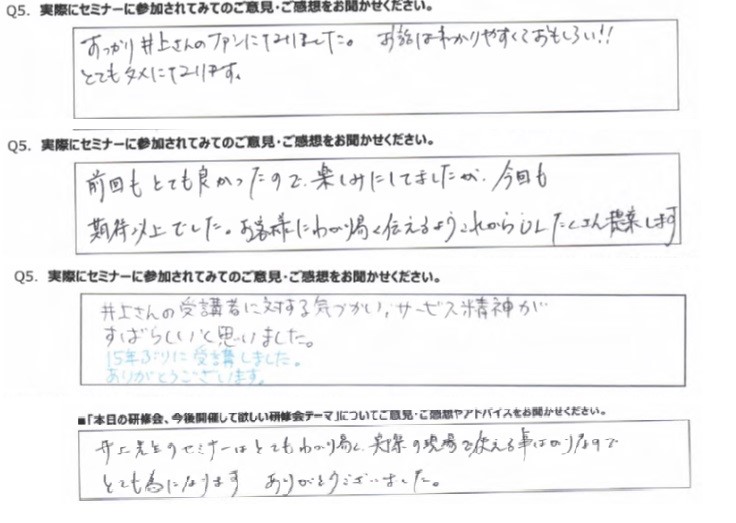 Q5. 実際にセミナーに参加されてみてのご意見・ご感想をお聞かせください。
すっかり井上さんのファンになりました。 お話はわかりやすくておもしろい!!
とてもタメになります。
Q5. 実際にセミナーに参加されてみてのご意見・ご感想をお聞かせください。
前回もとても良かったので、楽しみにしてましたが、今回も
期待以上でした。お客様にわかり易く伝えるようこれから たくさん提案します
Q5. 実際にセミナーに参加されてみてのご意見・ご感想をお聞かせください。
井上さんの受講者に対する気づかい,サービス精神が
すばらしいと思いました。
15年ぶりに受講しました。
ありがとうございます。
■「本日の研修会、今後開催して欲しい研修会テーマ」についてご意見・ご感想やアドバイスをお聞かせください。
井上先生のセミナーはとてもわかり易く、実際の現場で使える事ばかりなので
とても為になります ありがとうございました。